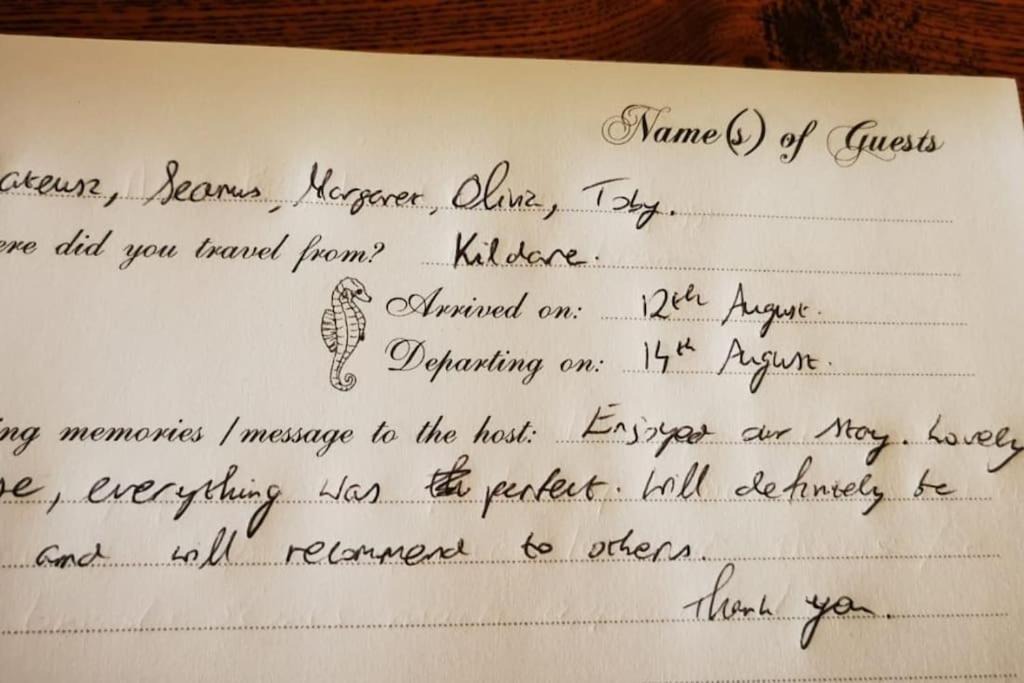 Name(s) of Guests
ateusz, Seamus, Margaret, Olivia, Toby.
ere did you travel from? Kildare.
Arrived on: 12th August.
Departing on: 14th August.
ng memories / message to the host: Enjoyed our stay. Lovely
se, everything was perfect. Will definitely be
and will recommend to others.
Thank you.